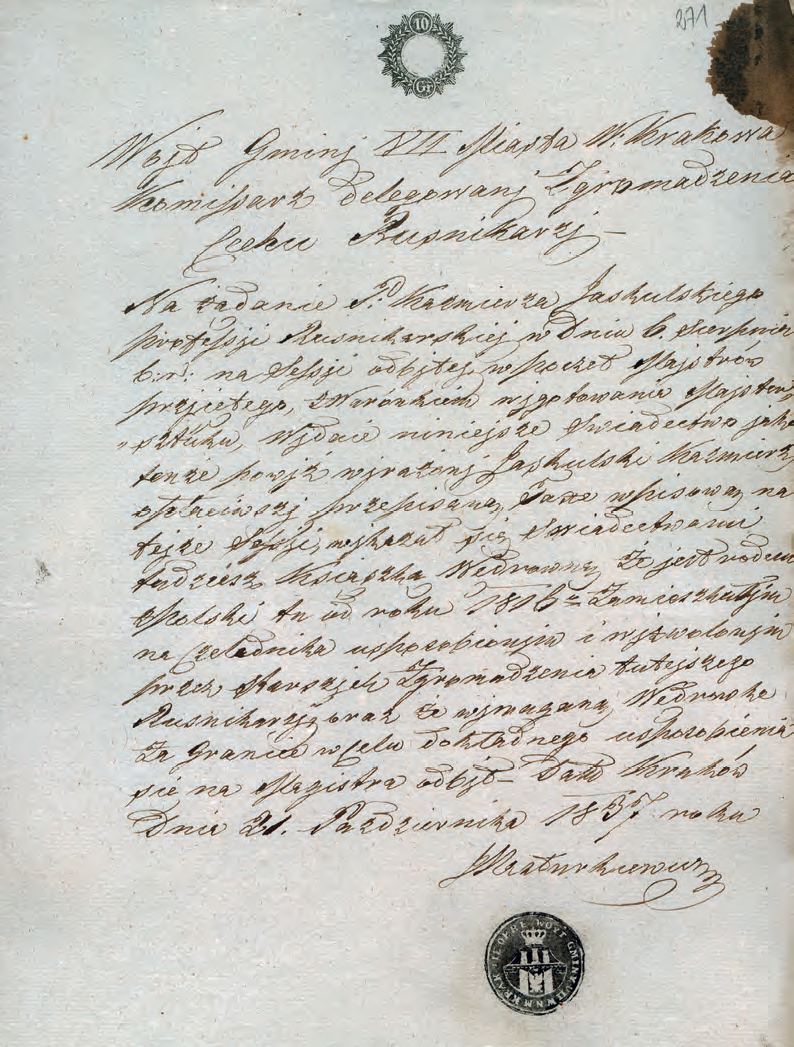 271
10
Gr
Wojt Gminy VII Miasta W. Krakowa
Kommissarz delegowany Zgromadzenia
Cechu Rusnikarzy –
Na żądanie P. Kazmierza Jaskulskiego
professji Rusnikarskiej w dniu 6. Sierpnia
b: r: na Sessji odbytej w poczet Majstrów
przyjętego, z warunkiem wygotowania Majster
„sztuku, wydaie niniejsze Swiadectwo jako
tenze powyż wyrażony Jaskulski Kazmierz
opłaciwszy przepisaną Taxe wpisową na
tejze Sessji, wykazał się Swiadectwami
tudziesz Ksiąszką Wędrowną że jest rodem
z Polski tu od roku 1816 Zamieszkałym
na Czeladnika usposobionym i wyzwolonym
przez Starszych Zgromadzenia tutejszego
Rusnikarzy, oraz że wymaganą Wędrowke
za Granice w Celu dokładnego usposobienia
się na Magistra odbył – Datt Kraków
Dnia 21. Października 1837 roku